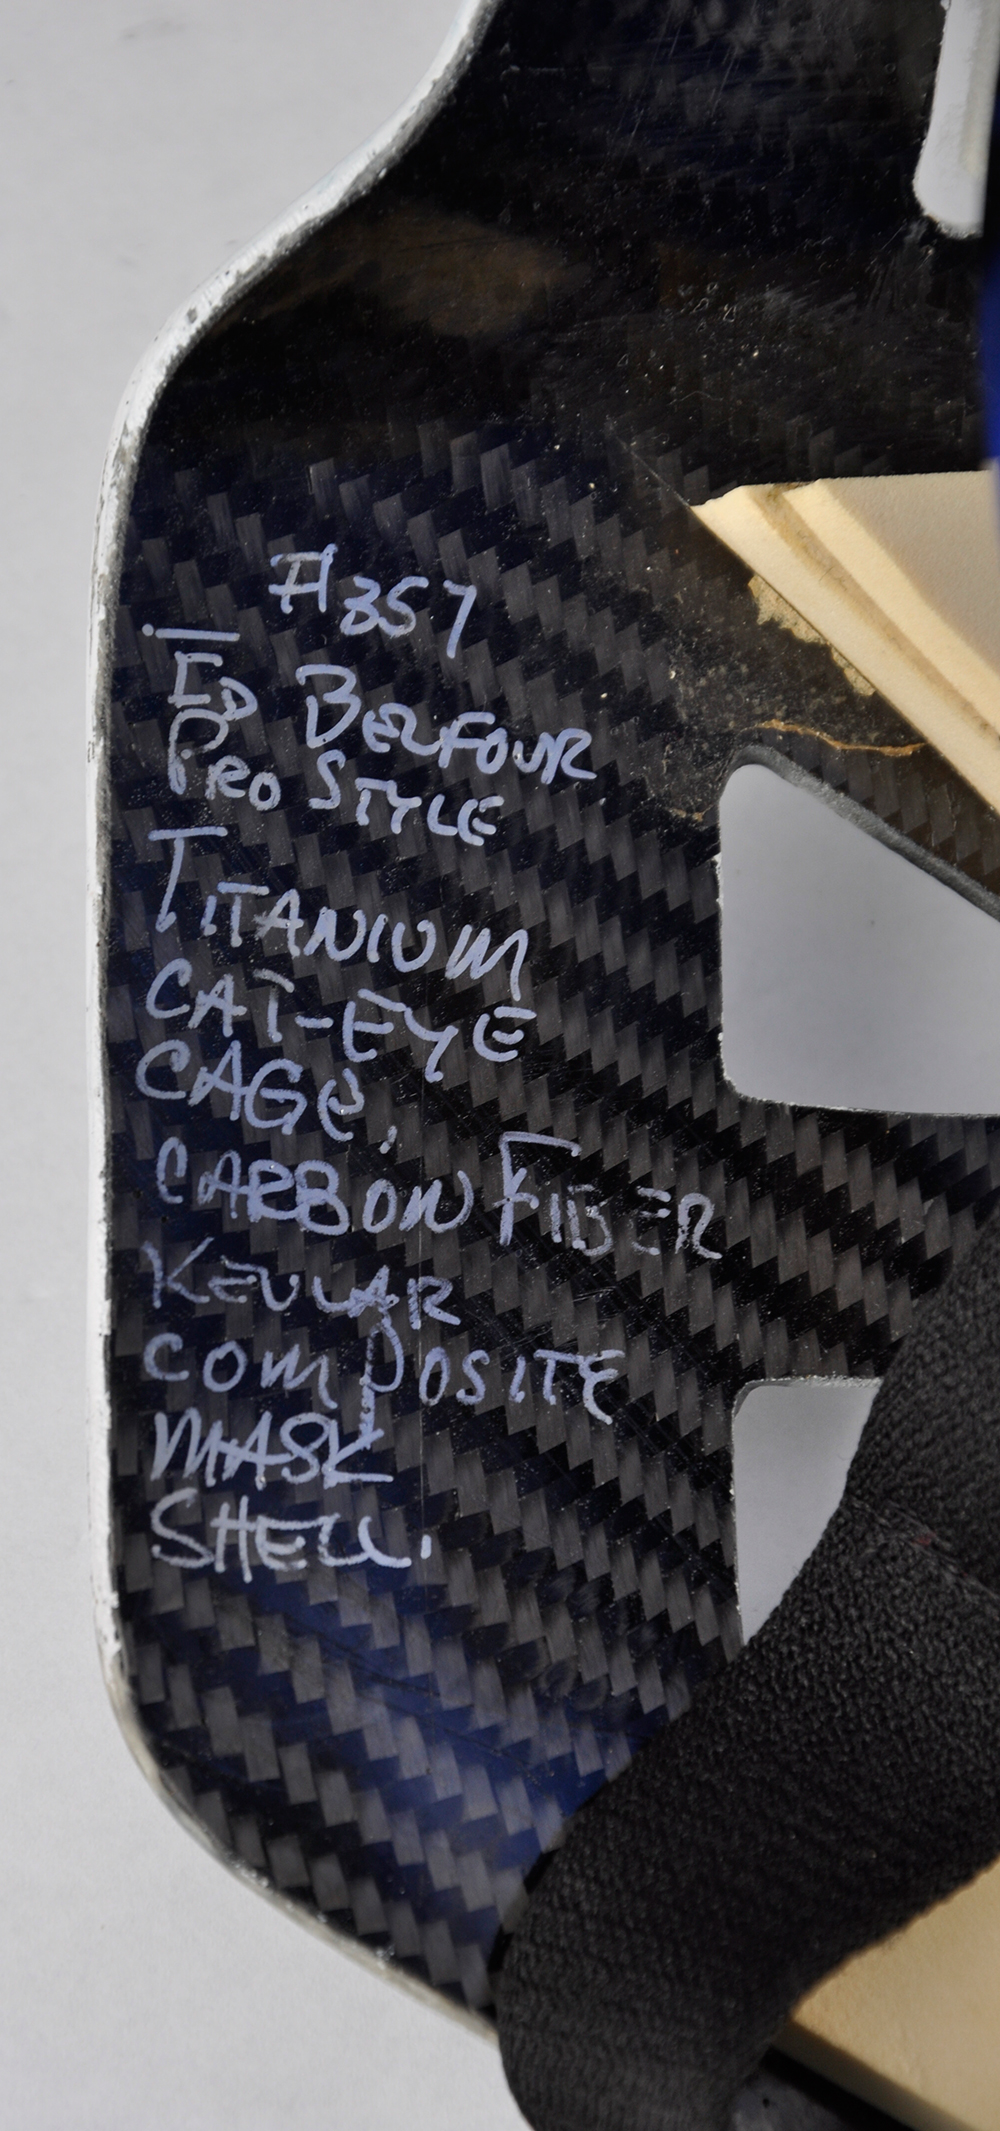 #357
ED BELFOUR
PRO STYLE
TITANIUM
CAT-EYE
CAGE,
CARBON FIBER
KEVLAR
COMPOSITE
MASK
SHELL.